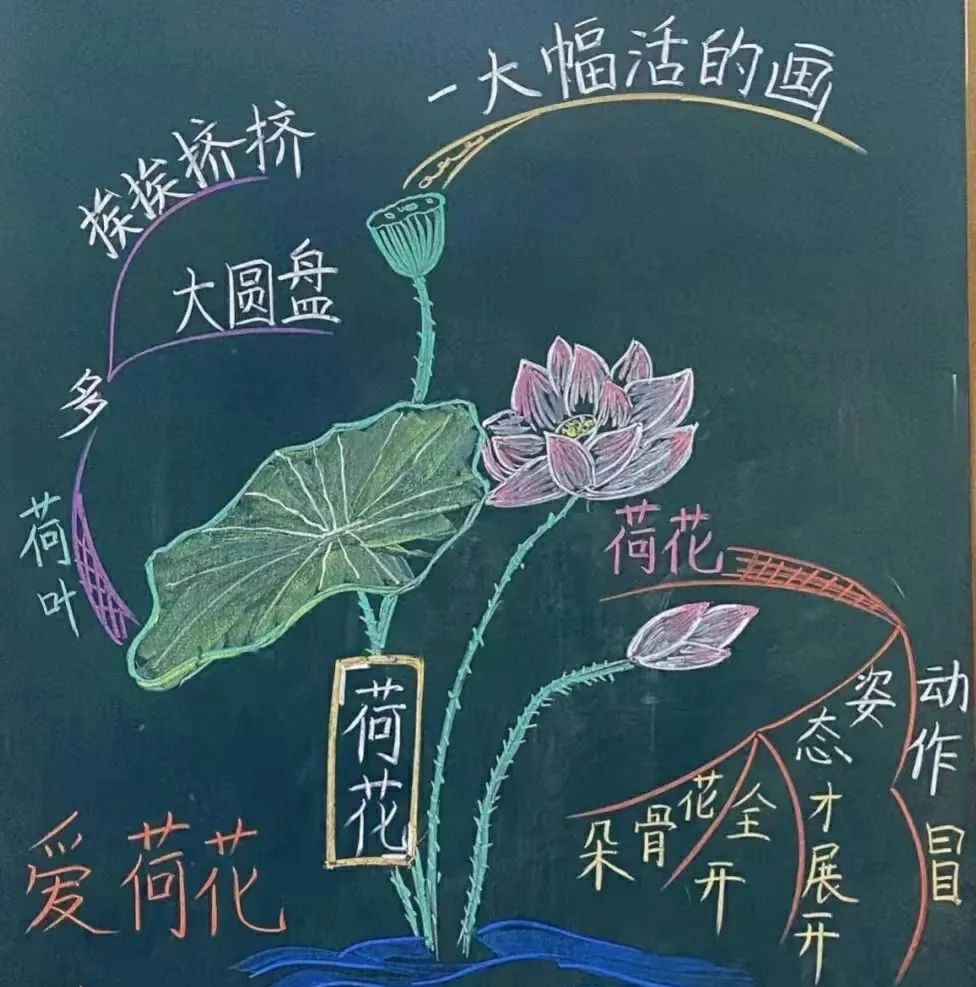 一大幅活的画
挨挨挤挤
大圆盘
多
荷叶
荷花
荷花
姿态
动作
才展开
全开
花骨朵
冒
爱荷花